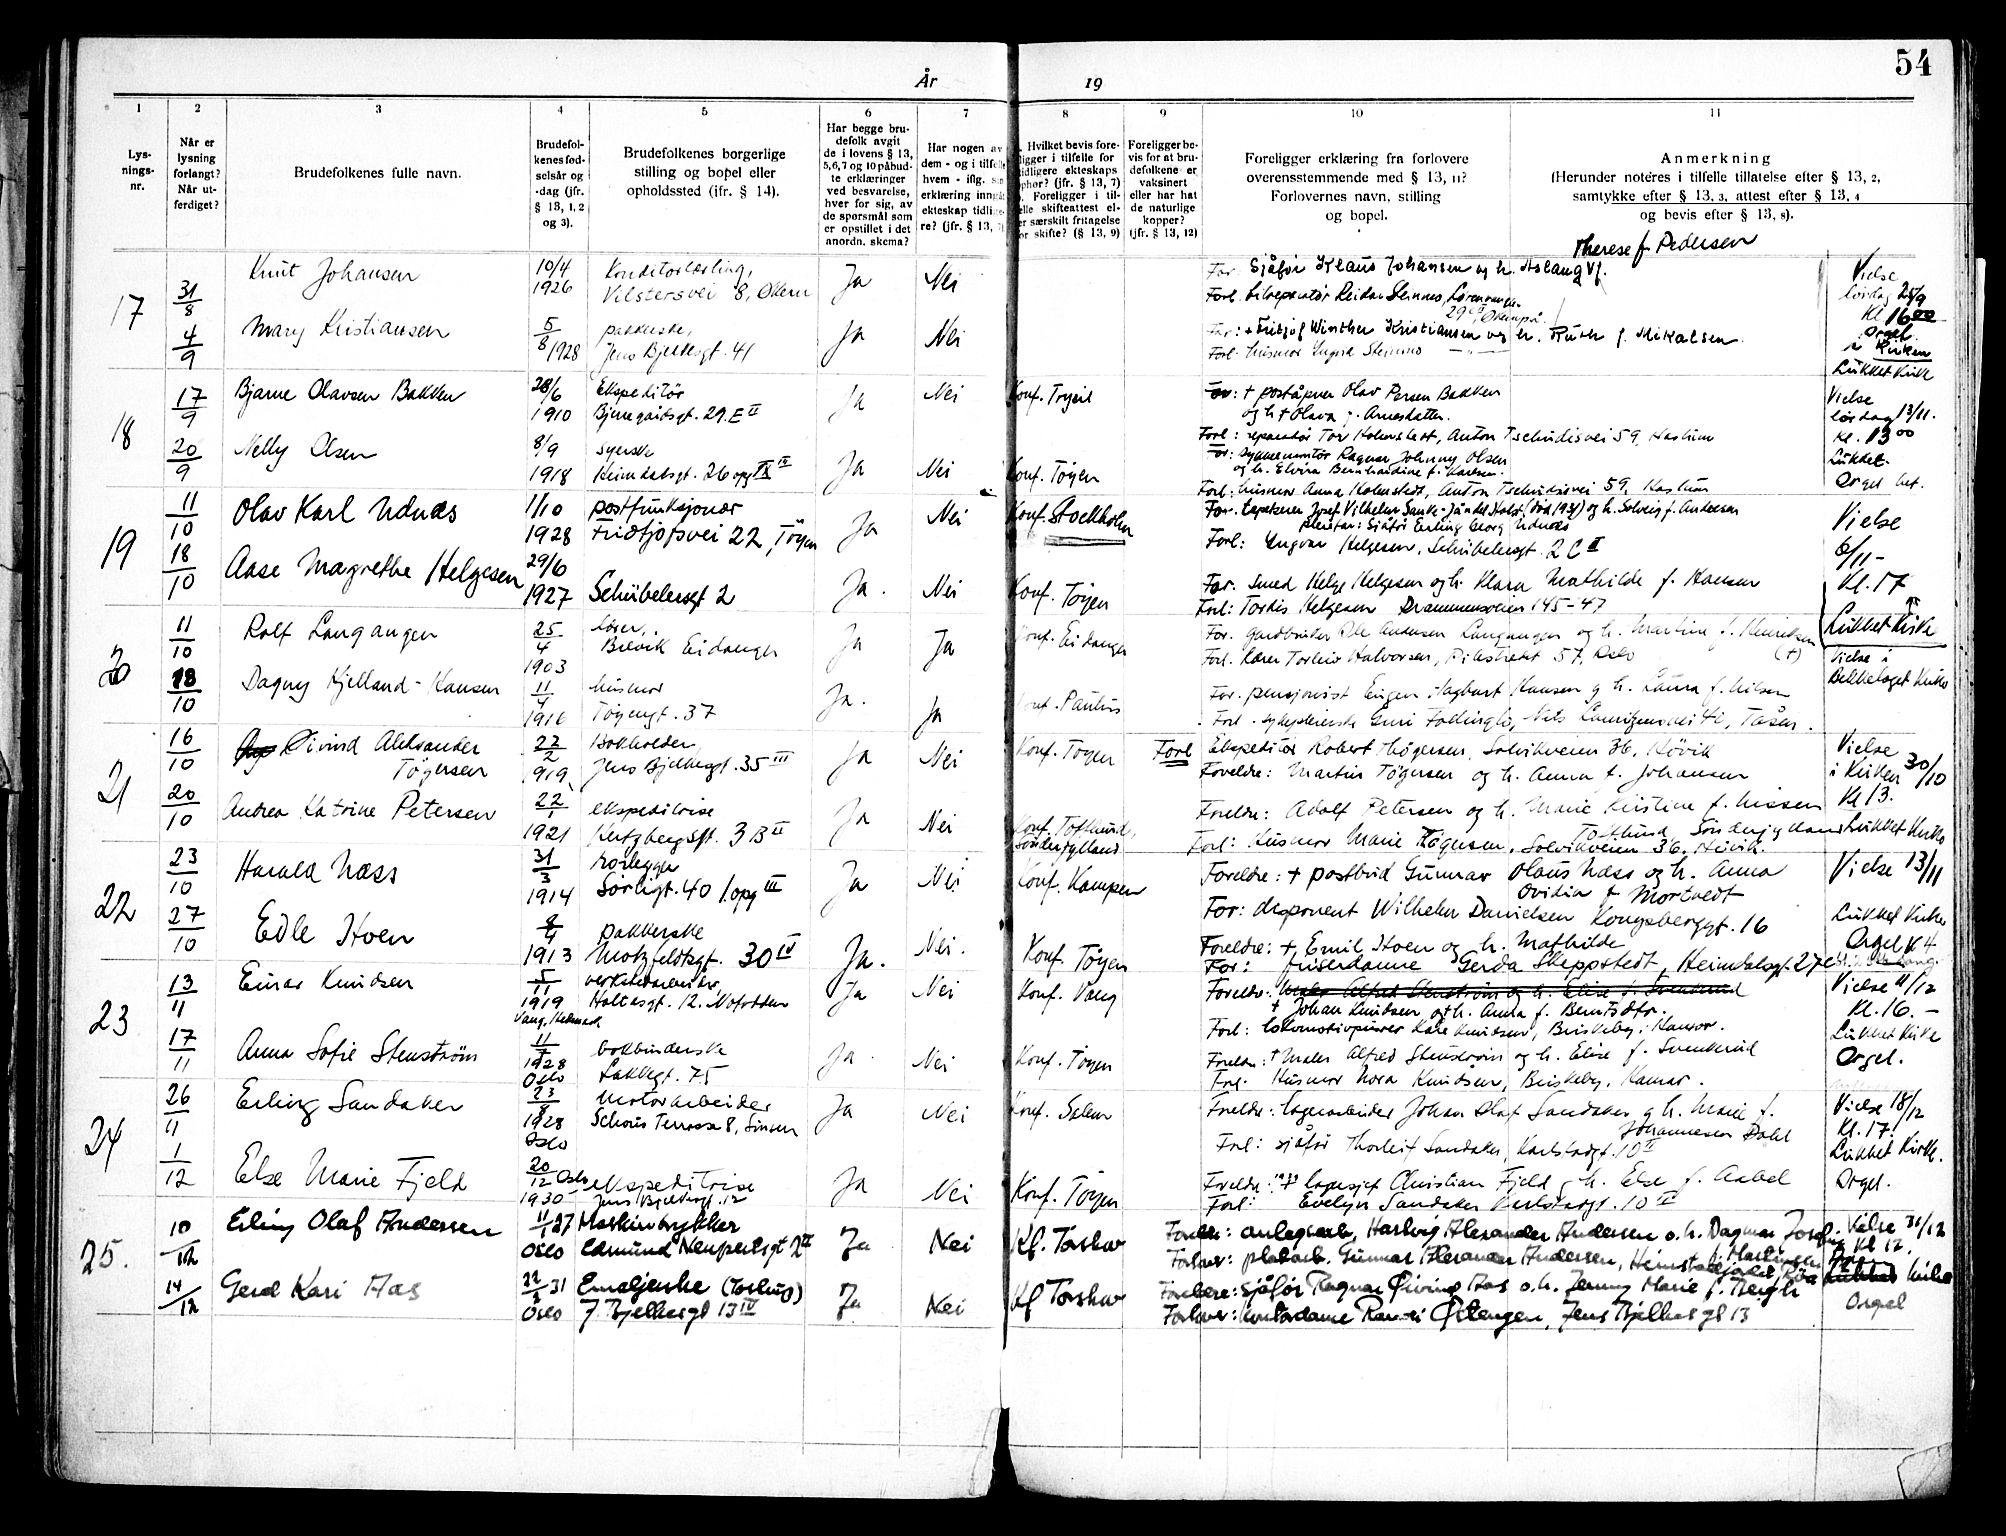 54
År 19
1 2 3 4 5 6 7 8 9 10 11
Lys-
nings-
nr.
Når er
lysning
forlangt?
Når ut-
ferdiget?
Brudefolkenes fulle navn.
Brudefol-
kenes fød-
selsår og
-dag (jfr.
§ 13, 1, 2
og 3).
Brudefolkenes borgerlige
stilling og bopel eller
opholdssted (jfr. § 14).
Har begge bru-
defolk avgit
de i lovens § 13,
5,6,7 og 10 påbud-
te erklæringer
ved besvarelse,
hver for sig, av
de spørsmål som
er opstillet i det
anordn. skema?
Har nogen av
dem - og i tilfelle
hvem - iflg. sin
erklæring inngått
ekteskap tidlige-
re? (jfr. § 13, 7)
Hvilket bevis fore-
ligger i tilfelle for
tidligere ekteskaps
ophør? (jfr. § 13, 7)
Foreligger i til-
felle skifteattest el-
er særskilt fritagelse
for skifte? (§ 13, 9)
Foreligger be-
vis for at bru-
defolkene er
vaksinert
eller har hat
de naturlige
kopper?
(jfr. § 13, 12)
Foreligger erklæring fra forlovere
overensstemmende med § 13, 11?
Forlovernes navn, stilling
og bopel.
Anmerkning
(Herunder noteres i tilfelle tillatelse efter § 13, 2,
samtykke efter § 13, 3, attest efter § 13, 4
og bevis efter § 13, 8).
Therese f. Pedersen
17
31/8
Knut Johansen
10/4
1926
Konditorlærling,
Vilstersvei 8, Økern
Ja
Nei
For. Sjåfør Klaus Johansen og h. Aslaug f.
Forl. bilreparatør Reidar Stennes, Lørenvangen
29 Økern
4/9
Mary Kristiansen
5/8 1928
pakkerske,
Jens Bjelkesgt. 41
Ja
Nei
For: + Fritjof Winther Kristiansen og h. Ruth f. Mikalsen
Forl. husmor Yngvil Stennes
Vielse
lørdag 25/9
Kl 16 00
Orgel
i Kirken
Lukket Kirke
18
17/9
Bjarne Olavsen Bakken
28/6
1910
Ekspeditør
Bjerregaardsgt. 29. E II
Ja
Nei
Konf. Trysil
For: + poståpner Olav Persen Bakken
og h + Olava f. Arnesdatter.
Forl: reparatør Tor Holmstedt, Anton Tschudisvei 59, Haslum
20/9
Nelly Olsen
8/9
1918
syerske
Heimdalsgt. 26 opg IX IV
Ja
Nei
Konf. Tøyen
For: sykkelmontør Ragnar Johnny Olsen
og h. Elvira Bernhardine f. Karlsen.
Forl: husmor Anna Holmstedt, Anton Tschudisvei 59, Haslum
Vielse
lørdag 13/11.
Kl. 13 00
Lukket
Orgel bet.
19
11/10
Olav Karl Udnæs
1/10
1928
postfunksjonær
Fridtjofsvei 22, Tøyen
Ja
Nei
Konf. Stockholm
For. tapetserer Josef Vilhelm Sanke-Jændel Holst (død 1931) og h. Solveig f. Andersen
pleiefar: Sjåfør Erling Georg Udnæs
Forl: Yngvar Helgesen, Schübelersgt. 2 C II
18/10
Aase Margrethe Helgesen
29/6
1927
Schübelersgt 2
Ja.
Nei
Konf. Tøyen
For. smed Helge Helgesen og h. Klara Mathilde f. Hansen
Forl: Tordis Helgesen Drammensveien 145-47
Vielse
6/11-
Kl. 17
Lukket Kirke
20
11/10
Rolf Langangen
25/4
1903
lærer,
Brevik Eidanger
Ja
Ja
Konf. Eidanger
For. gardbruker Ole Andersen Langangen og h. Martine f. Henriksen
(+)
Forl. lærer Torleiv Halvorsen, Pilestredet 57, Oslo
18/10
Dagny Kjelland-Hansen
11/4
1910
husmor
Tøyengt. 37
Ja.
Ja
Konf. Paulus
For. pensjonist Eugen Dagbart Hansen og h. Laura f. Nilsen
Vielse i
Bekkelaget Kirke
21
16/10
Øivind Aleksander
Tøgersen
22/2
1919
Bokholder,
Jens Bjelkesgt. 35 III
Ja
Nei
Konf. Tøyen
Forl
Ekspeditør Robert Thøgersen, Solvikveien 36, Høvik
Foreldre: Martin Tøgersen og h. Anna f. Johansen
20/10
Andrea Katrine Petersen
22/1
1921
ekspeditrise
Hertzbergsgt. 3 B II
Ja
Nei
Konf. Toftlund,
Sønderjylland
Foreldre: Adolf Petersen og h. Marie Kirstine f. Nissen
Toftlund, Sønderjylland
Forl: Husmor Marie Tøgersen, Solvikveien 36, Høvik.
Vielse
i Kirken 30/10
Kl 13.
Lukket Kirke
22
23/10
Harald Næss
31/3
1914
rørlegger
Sørligt. 40 1. opg III
Ja
Nei
Konf. Kampen
Foreldre: + postbud Gunnar Olaus Næss og h. Anna
Ovidia f. Mortvedt
For: disponent Wilhelm Danielsen Kongsberggt. 16
27/10
Edle Hoen
8/4
1913
pakkerske
Motzfeldtsgt. 30 IV
Ja.
Nei.
Konf. Tøyen
Foreldre: + Emil Hoen og h. Mathilde
For: friserdame Gerda Skeppstedt, Heimdalsgt. 27 c
Vielse 13/11
Lukket Kirke
Orgel Kl 4
23
13/11
Einar Knudsen
5/11
1919
Vang, Hedmark
verkstedarbeider,
Holtesgt. 12. Notodden
Ja
Nei
Konf. Vang
Foreldre: Maler Alfred Stenstrøm og h. Elise f. Svenkerud
+ Johan Knudsen og h. Anna f. Berntsdtr.
Forl: lokomotivpusser Kåre Knudsen, Briskeby, Hamar.
17/11
Anna Sofie Stenstrøm
11/7
1928
Oslo
bokbinderske
Lakkegt. 75
Ja
Nei
Konf. Tøyen
Foreldre: + Maler Alfred Stenstrøm og h. Elise f. Svenkerud
Forl. Husmor Nora Knudsen, Briskeby, Hamar.
Vielse 11/12
Kl. 16. -
Lukket Kirke
Orgel.
24
26/11
Erling Sandaker
23/8
1928
Oslo
Motorarbeider
Schous Terrasse 8, Sinsen
Ja
Nei
Konf. Salem
Foreldre: lagerarbeider Johan Olaf Sandaker og h. Marie f.
Johannesen Dahl
Forl: sjåfør Thorleif Sandaker, Karlstadgt. 10 II
1/12
Else Marie Fjeld
20/12 Oslo
1930
ekspeditrise
Jens Bjelkesgt. 12
Ja
Nei
Konf. Tøyen
Foreldre: lagersjef Christian Fjeld og h. Else f. Aabel
Forl: Evelyn Sandaker Karlstadgt. 10 II
Vielse 18/12
Kl. 17.
Lukket Kirke.
Orgel.
25.
10/12
Erling Olaf Andersen
11/1 27
Oslo
Maskintrykker
Edmund Neupertsgt 2 III
Ja
Nei
Kf. Torshov
Foreldre: anlegsarb. Hartvig Alexander Andersen o.h. Dagmar Josefine
f. Martinsen
Forlover: platearb. Gunnar Alexander Andersen, Heimstadjordet, Røa
14/12
Gerd Kari Aas
22/2 31
Oslo
Emaljerske (Tostrup)
J Bjelkesgt 13 IV
Ja
Nei
Kf Torshov
Foreldre: sjåfør Ragnar Øivind Aas o.h. Jenny Marie f. Bergh
Forlover: Kontordame Randi Østengen, Jens Bjelkes gt 13
Vielse 31/12
Kl 12.
Kirke
Orgel